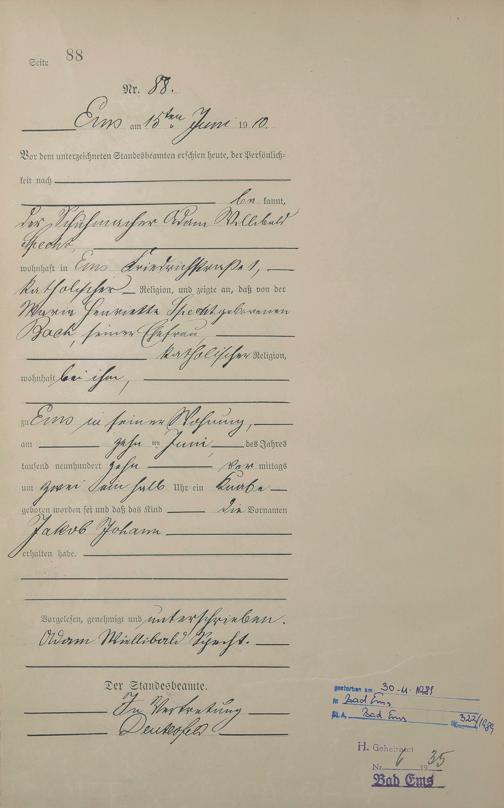 Seite 88
Nr. 88.
Ems am 15ten Juni 1910.
Vor dem unterzeichneten Standesbeamten erschien heute, der Persönlich-
keit nach
be kannt,
der Schuhmacher Adam Willibald
Specht,
wohnhaft in Ems Friedrichstraße
katholischer Religion, und zeigte an, daß von der
Maria Henriette Specht geborenen
Bock, seiner Ehefrau
katholischer Religion,
wohnhaft bei ihm,
zu Ems in seiner Wohnung,
am zehn ten Juni, des Jahres
tausend neunhundert zehn Vor mittags
um zwei ein halb Uhr ein Knabe
geboren worden sei und daß das Kind die Vornamen
Jakob Johann
erhalten habe.
Vorgelesen, genehmigt und unterschrieben.
Adam Willibald Specht.
Der Standesbeamte.
In Vertretung
gestorben am 30.11.1981
in Bad Ems
St. A. Bad Ems
H. Geheiratet
Nr. 6 1935
Bad Ems